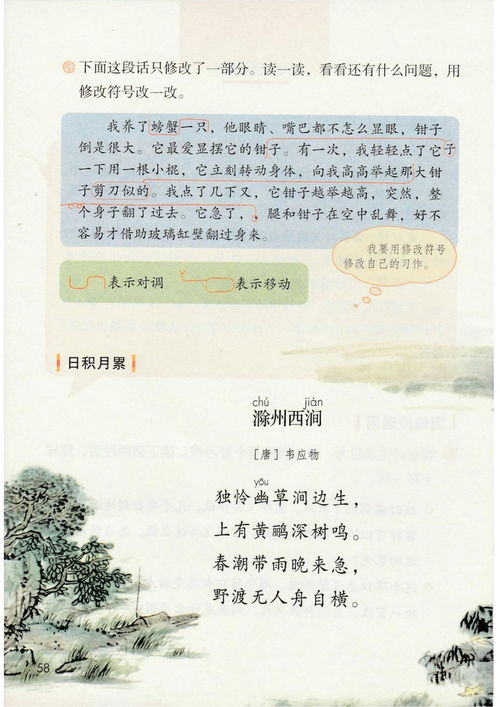 下面这段话只修改了一部分。读一读，看看还有什么问题，用
修改符号改一改。
我养了螃蟹一只，他眼睛、嘴巴都不怎么显眼，钳子
倒是很大。它最爱显摆它的钳子。有一次，我轻轻点了它子
一下用一根小棍，它立刻转动身体，向我高高举起那大钳
子剪刀似的。我点了几下又，它钳子越举越高，突然，整
个身子翻了过去。它急了，，腿和钳子在空中乱舞，好不
容易才借助玻璃缸壁翻过身来。
我要用修改符号
修改自己的习作。
表示对调
表示移动
日积月累
chú jiàn
滁州西涧
［唐］韦应物
yōu
独怜幽草涧边生，
上有黄鹂深树鸣。
春潮带雨晚来急，
野渡无人舟自横。
58